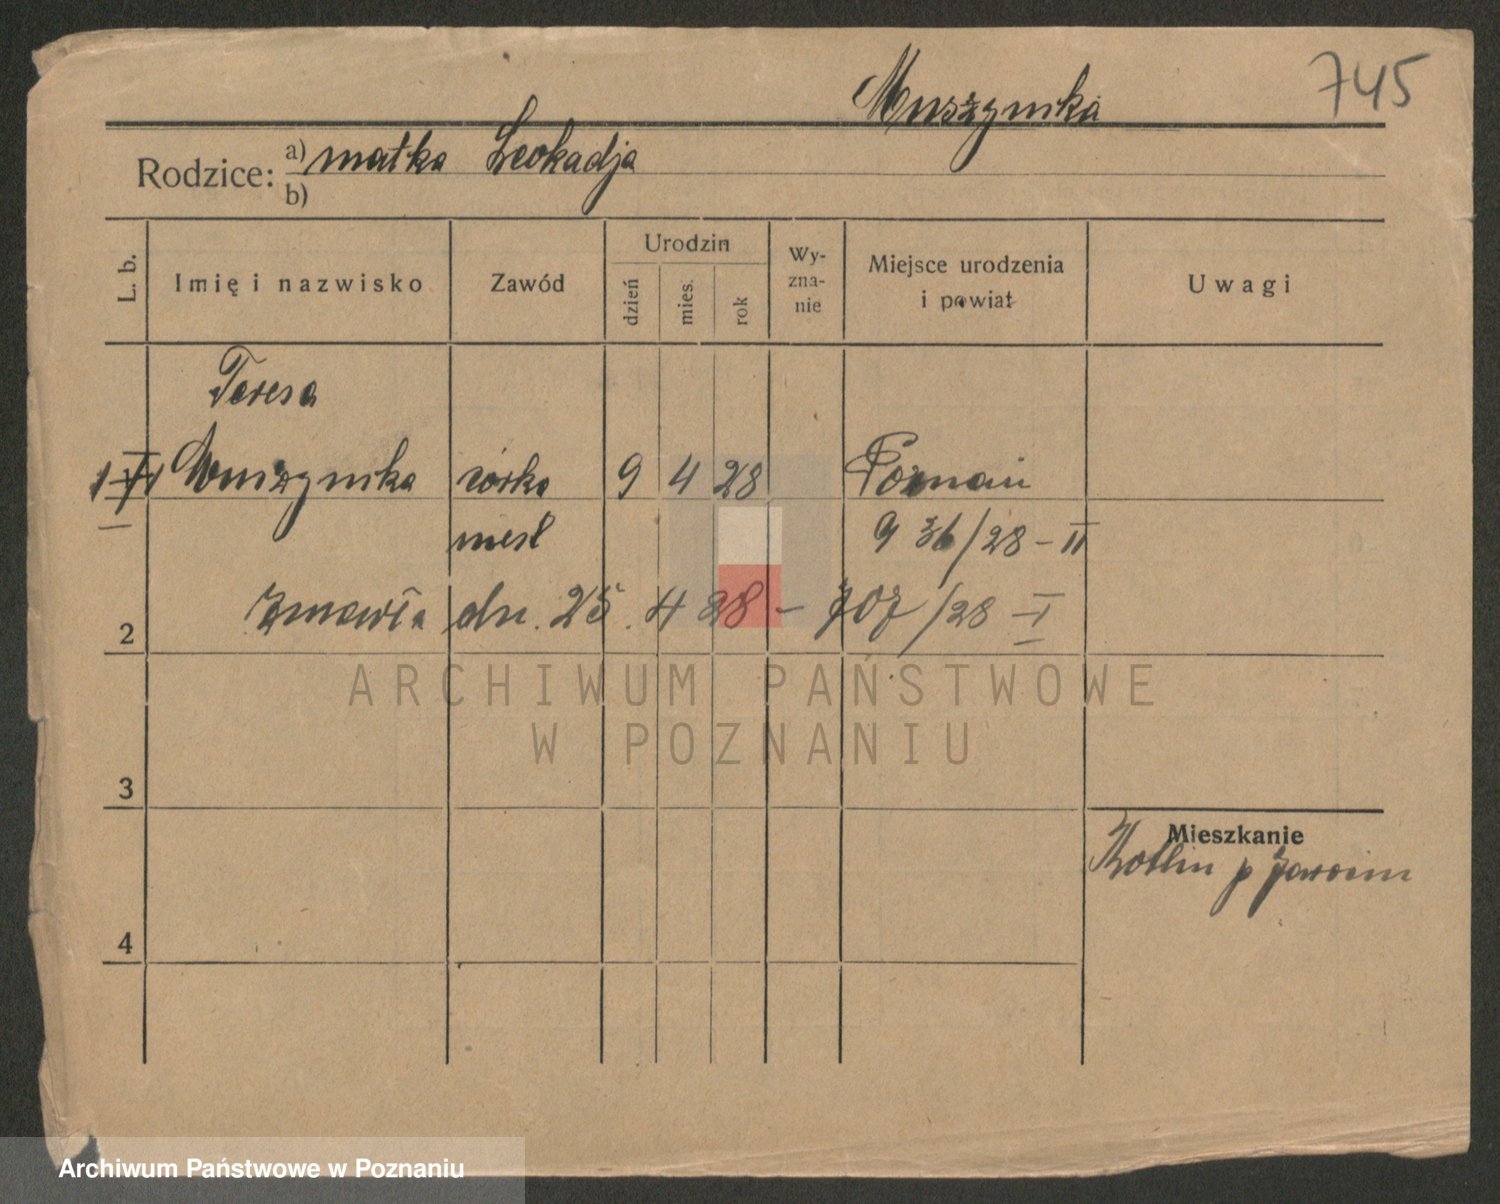 745
Muszynska
Rodzice: a) matka Leokadja
b)
L. b. Imię i nazwisko Zawód Urodzin dzień mies. rok Wy-zna-nie Miejsce urodzenia i powiat Uwagi
Teresa
1 Muszynska córka 9 4 28 Poznań
nieśl 9 36/28 - II
2 zmarła dn. 25. 4 28 - 707/28 - I
3
Mieszkanie
Kotlin p Jarocin
4
ARCHIWUM PAŃSTWOWE
W POZNANIU
Archiwum Państwowe w Poznaniu